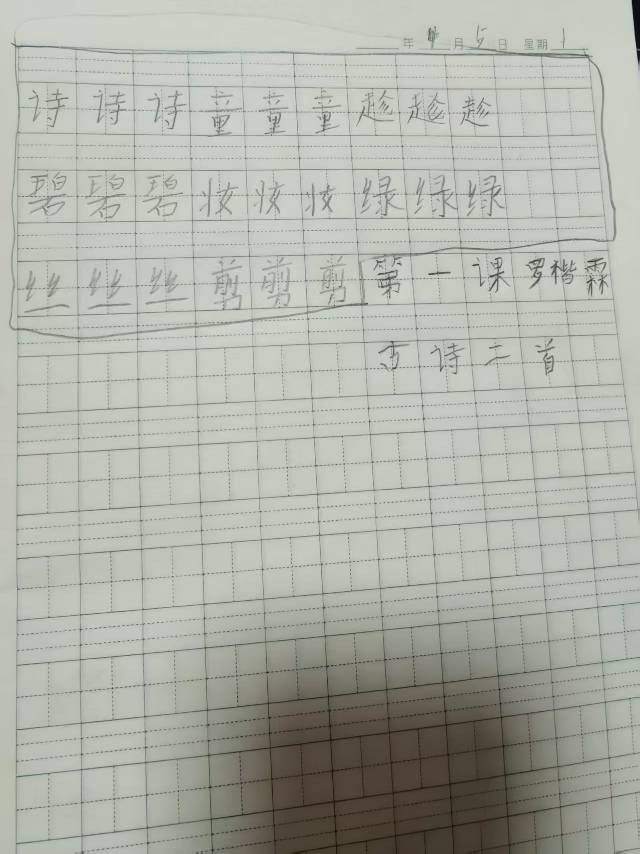 年 4 月 5 日 星期 1
诗 诗 诗 童 童 童 趁 趁 趁
碧 碧 碧 妆 妆 妆 绿 绿 绿
丝 丝 丝 剪 剪 剪 第 一 课 罗 楷 霖
古 诗 二 首